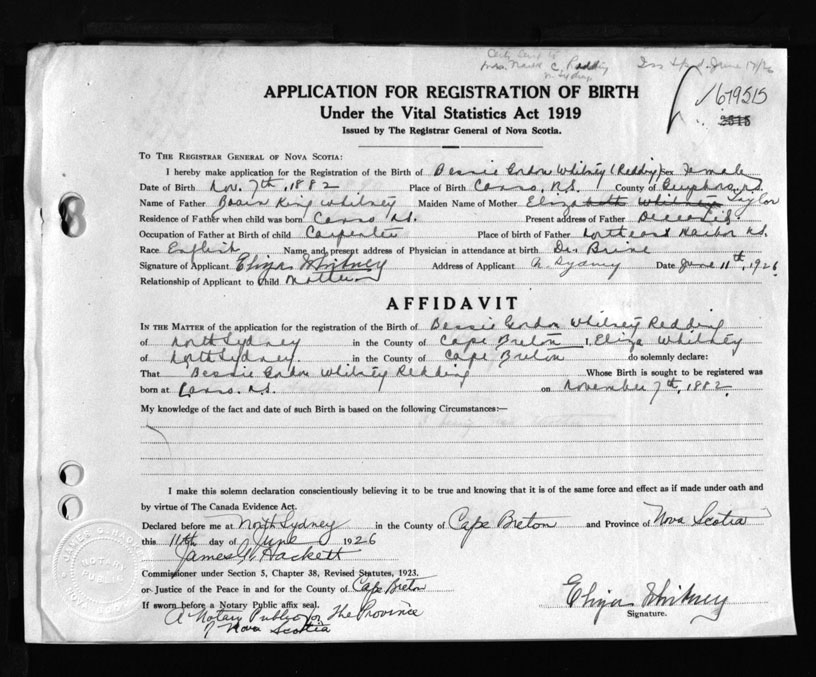 C. Redding
N. Sydney
June 17/26
APPLICATION FOR REGISTRATION OF BIRTH
Under the Vital Statistics Act 1919
Issued by The Registrar General of Nova Scotia.
679515
2515
TO THE REGISTRAR GENERAL OF NOVA SCOTIA:
I hereby make application for the Registration of the Birth of Bessie Gordon Whitney (Redding) Sex Female
Date of Birth Nov. 7th, 1882 Place of Birth Canso, N.S. County of Guysboro, N.S.
Name of Father King Whitney Maiden Name of Mother Elizabeth Whitney Taylor
Residence of Father when child was born Canso N.S. Present address of Father Deceased
Occupation of Father at Birth of child Carpenter Place of birth of Father Harbor N.S.
Race English Name and present address of Physician in attendance at birth
Signature of Applicant Eliza Whitney Address of Applicant N. Sydney Date June 11th, 1926
Relationship of Applicant to Child Mother
AFFIDAVIT
IN THE MATTER of the application for the registration of the Birth of Bessie Gordon Whitney Redding
of North Sydney in the County of Cape Breton I, Eliza Whitney
of North Sydney. in the County of Cape Breton do solemnly declare:
That Bessie Gordon Whitney Redding Whose Birth is sought to be registered was
born at Canso. N.S. on November 7th, 1882.
My knowledge of the fact and date of such Birth is based on the following Circumstances:—
I make this solemn declaration conscientiously believing it to be true and knowing that it is of the same force and effect as if made under oath and
by virtue of The Canada Evidence Act.
Declared before me at North Sydney in the County of Cape Breton and Province of Nova Scotia
this 11th day of June 1926
James G. Hackett
Commissioner under Section 5, Chapter 38, Revised Statutes, 1923.
or Justice of the Peace in and for the County of Cape Breton
If sworn before a Notary Public affix seal.
A Notary Public for The Province
of Nova Scotia
Eliza Whitney
Signature.
NOTARY
PUBLIC